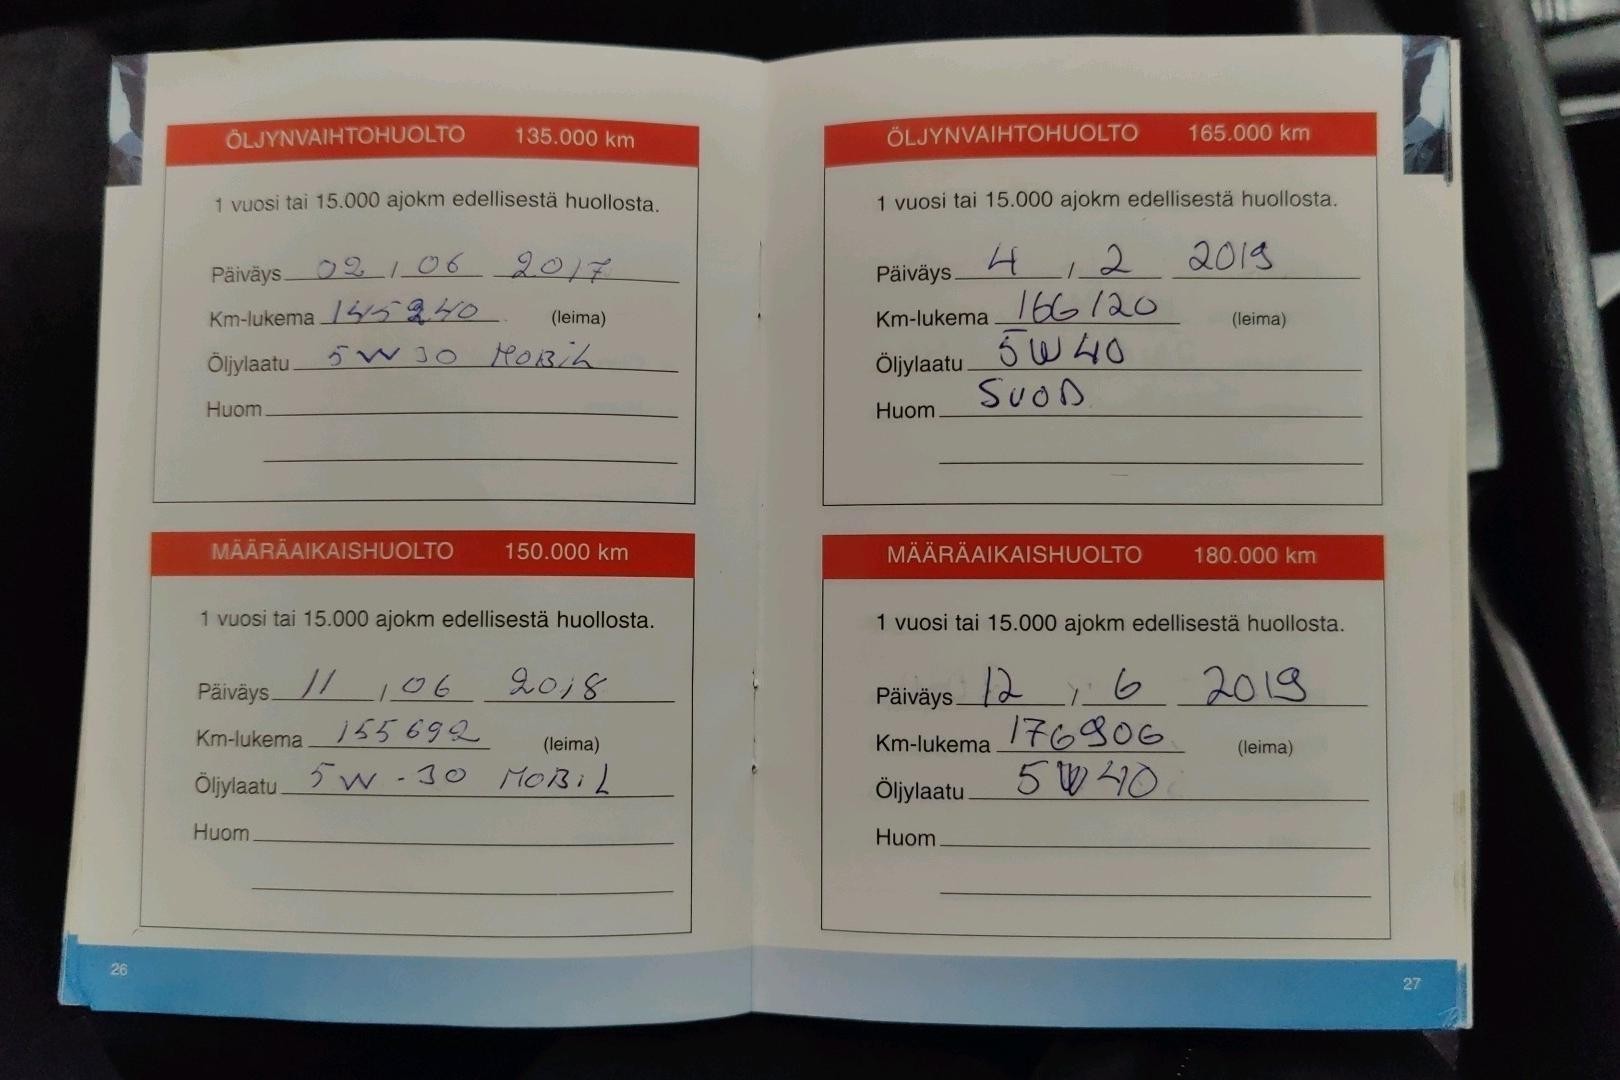 ÖLJYNVAIHTOHUOLTO 135.000 km
1 vuosi tai 15.000 ajokm edellisestä huollosta.
Päiväys 02 / 06 2017
Km-lukema 145240 (leima)
Öljylaatu 5W30 MOBiL
Huom
MÄÄRÄAIKAISHUOLTO 150.000 km
1 vuosi tai 15.000 ajokm edellisestä huollosta.
Päiväys 11 / 06 2018
Km-lukema 155692 (leima)
Öljylaatu 5W-30 MOBiL
Huom
26
ÖLJYNVAIHTOHUOLTO 165.000 km
1 vuosi tai 15.000 ajokm edellisestä huollosta.
Päiväys 4 / 2 2019
Km-lukema 166120 (leima)
Öljylaatu 5W40
Huom
MÄÄRÄAIKAISHUOLTO 180.000 km
1 vuosi tai 15.000 ajokm edellisestä huollosta.
Päiväys 12 / 6 2019
Km-lukema 176906 (leima)
Öljylaatu 5W40
Huom
27